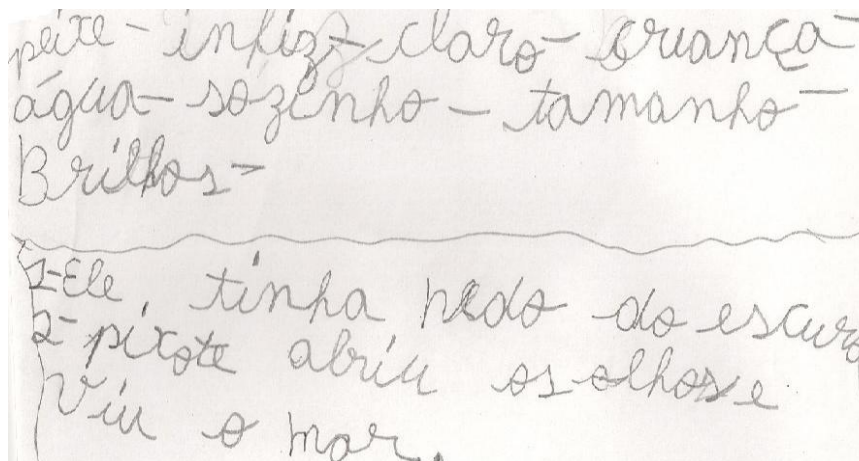 peixe - infiz - claro - criança -
água - sozinho - tamanho -
Brilhos -
1-Ele tinha medo do escuro
2-pixote abriu os olhos e
Viu o mar.